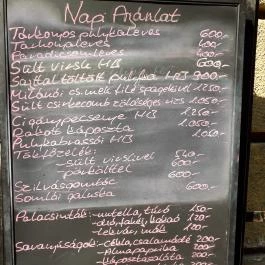 Napi Ajánlat
Tárkonyos pulykaleves 600,-
Tarhonyaleves 400,-
Paradicsomleves 400,-
Sült virsli HB 600,-
Sajttal töltött pulyka HB 900,-
Milánói cs.mell filé spagettivel 1250,-
Sült csirkecomb zöldséges rizs 1.050,-
Cigánypecsenye HB 1250,-
Rakott káposzta 1.050,-
Pulykabrassói HB 1050,-
Tökfőzelék:
-sült virslivel 540,-
-pörkölttel 600,-
Szilvásgombóc
Somlói galuska 600,-
Palacsinták:-nutella, túró 150,-
-dió, fahéj, kakaó 120,-
-lekvár, mák 120,-
Savanyúságok:-cékla, csalamádé 200,-
-Almapaprika 200,-
-Káposztasaláta 200,-